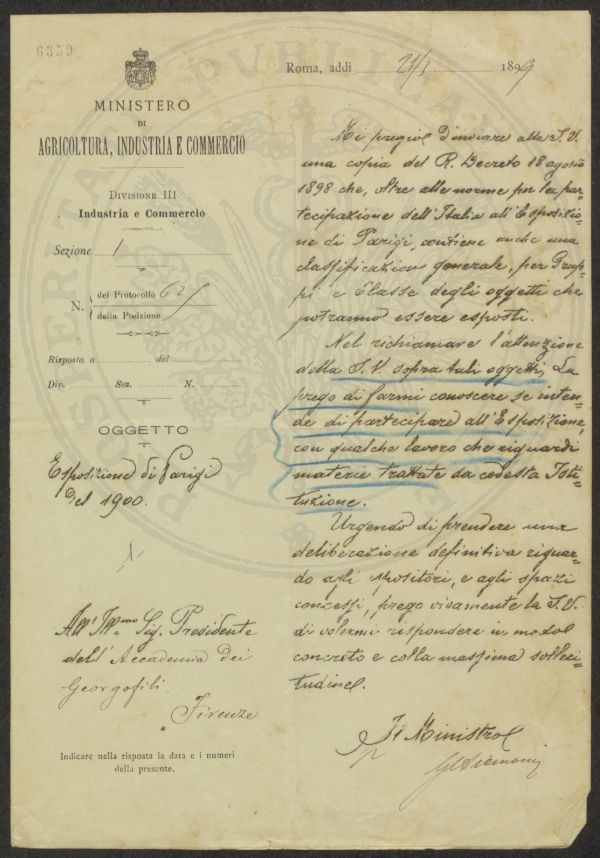 6359
Roma, addì 21/1 1899
MINISTERO
DI
AGRICOLTURA, INDUSTRIA E COMMERCIO
DIVISIONE III
Industria e Commercio
Sezione 1
N. del Protocollo 625
della Posizione
Risposta a del
Div. Sez. N.
OGGETTO
Esposizione di Parigi
del 1900.
All' Ill.mo Sig. Presidente
dell' Accademia dei
Georgofili
Firenze
Indicare nella risposta la data e i numeri
della presente.
Mi pregio d'inviare alla S.V.
una copia del R. Decreto 18 agosto
1898 che, oltre alle norme per la par-
tecipazione dell'Italia all'Esposizio-
ne di Parigi, contiene anche una
classificazione generale, per Grup-
pi e Classe degli oggetti che
potranno essere esposti.
Nel richiamare l'attenzione
della S.V. sopra tali oggetti, La
prego di farmi conoscere se inten-
de di partecipare all'Esposizione,
con qualche lavoro che riguardi
materie trattate da codesta Isti-
tuzione.
Urgendo di prendere una
deliberazione definitiva riguar-
do agli espositori, e agli spazi
concessi, prego vivamente la S.V.
di volermi rispondere in modo
concreto e colla massima solleci-
tudine.
Il Ministro